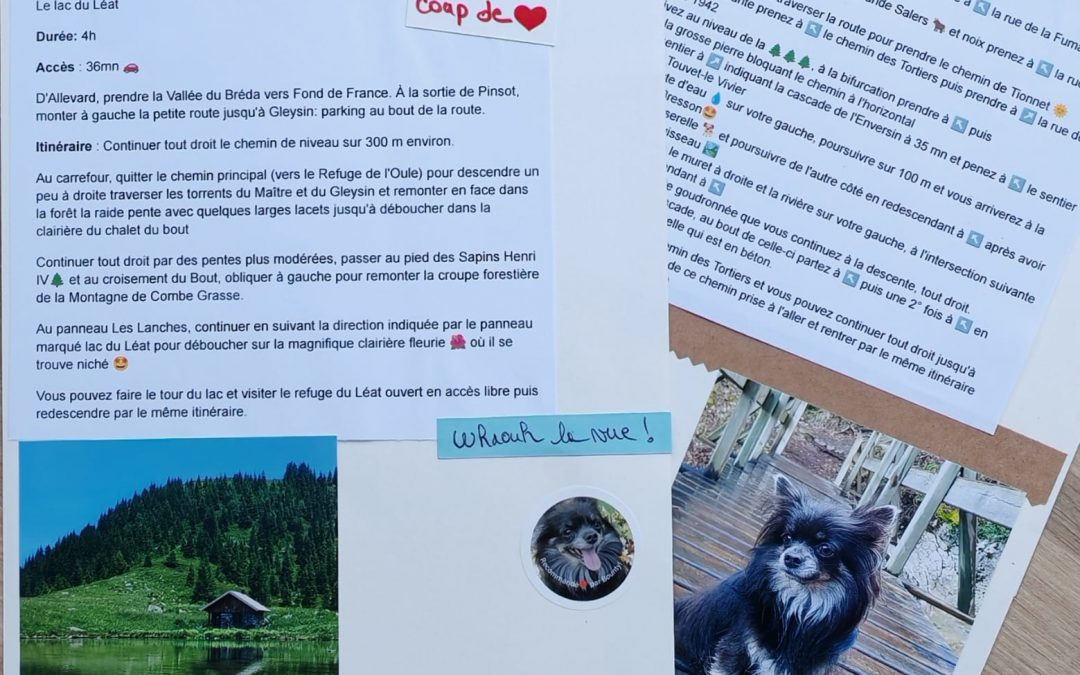 Le lac du Léat
Coup de ❤️
Durée: 4h
Accès : 36mn 🚗
D'Allevard, prendre la Vallée du Bréda vers Fond de France. À la sortie de Pinsot,
monter à gauche la petite route jusqu'à Gleysin: parking au bout de la route.
Itinéraire : Continuer tout droit le chemin de niveau sur 300 m environ.
Au carrefour, quitter le chemin principal (vers le Refuge de l'Oule) pour descendre un
peu à droite traverser les torrents du Maître et du Gleysin et remonter en face dans
la forêt la raide pente avec quelques larges lacets jusqu'à déboucher dans la
clairière du chalet du bout
Continuer tout droit par des pentes plus modérées, passer au pied des Sapins Henri
IV🌲 et au croisement du Bout, obliquer à gauche pour remonter la croupe forestière
de la Montagne de Combe Grasse.
Au panneau Les Lanches, continuer en suivant la direction indiquée par le panneau
marqué lac du Léat pour déboucher sur la magnifique clairière fleurie 🌺 où il se
trouve niché 🤩
Vous pouvez faire le tour du lac et visiter le refuge du Léat ouvert en accès libre puis
redescendre par le même itinéraire.
whaouh la vue !
Recommandé ❤️ par Bounty
à ↖️ la rue de la
Salers 🐂 et noix prenez à ↖️ la rue
traverser la route pour prendre le chemin de Tionnet ☀️
1942
prenez à ↖️ le chemin des Tortiers puis prendre à ↗️ la rue
au niveau de la 🌲🌲🌲, à la bifurcation prendre à ↖️ puis
la grosse pierre bloquant le chemin à l'horizontal
à ↗️ indiquant la cascade de l'Enversin à 35 mn et penez à ↖️ le sentier
Touvet-le Vivier
d'eau 💧 sur votre gauche, poursuivre sur 100 m et vous arriverez à la
🤩
🐕 et poursuivre de l'autre côté en redescendant à ↖️ après avoir
🏞️
le muret à droite et la rivière sur votre gauche, à l'intersection suivante
à ↖️
goudronnée que vous continuez à la descente, tout droit.
au bout de celle-ci partez à ↖️ puis une 2° fois à ↖️ en
qui est en béton.
des Tortiers et vous pouvez continuer tout droit jusqu'à
de ce chemin prise à l'aller et rentrer par le même itinéraire